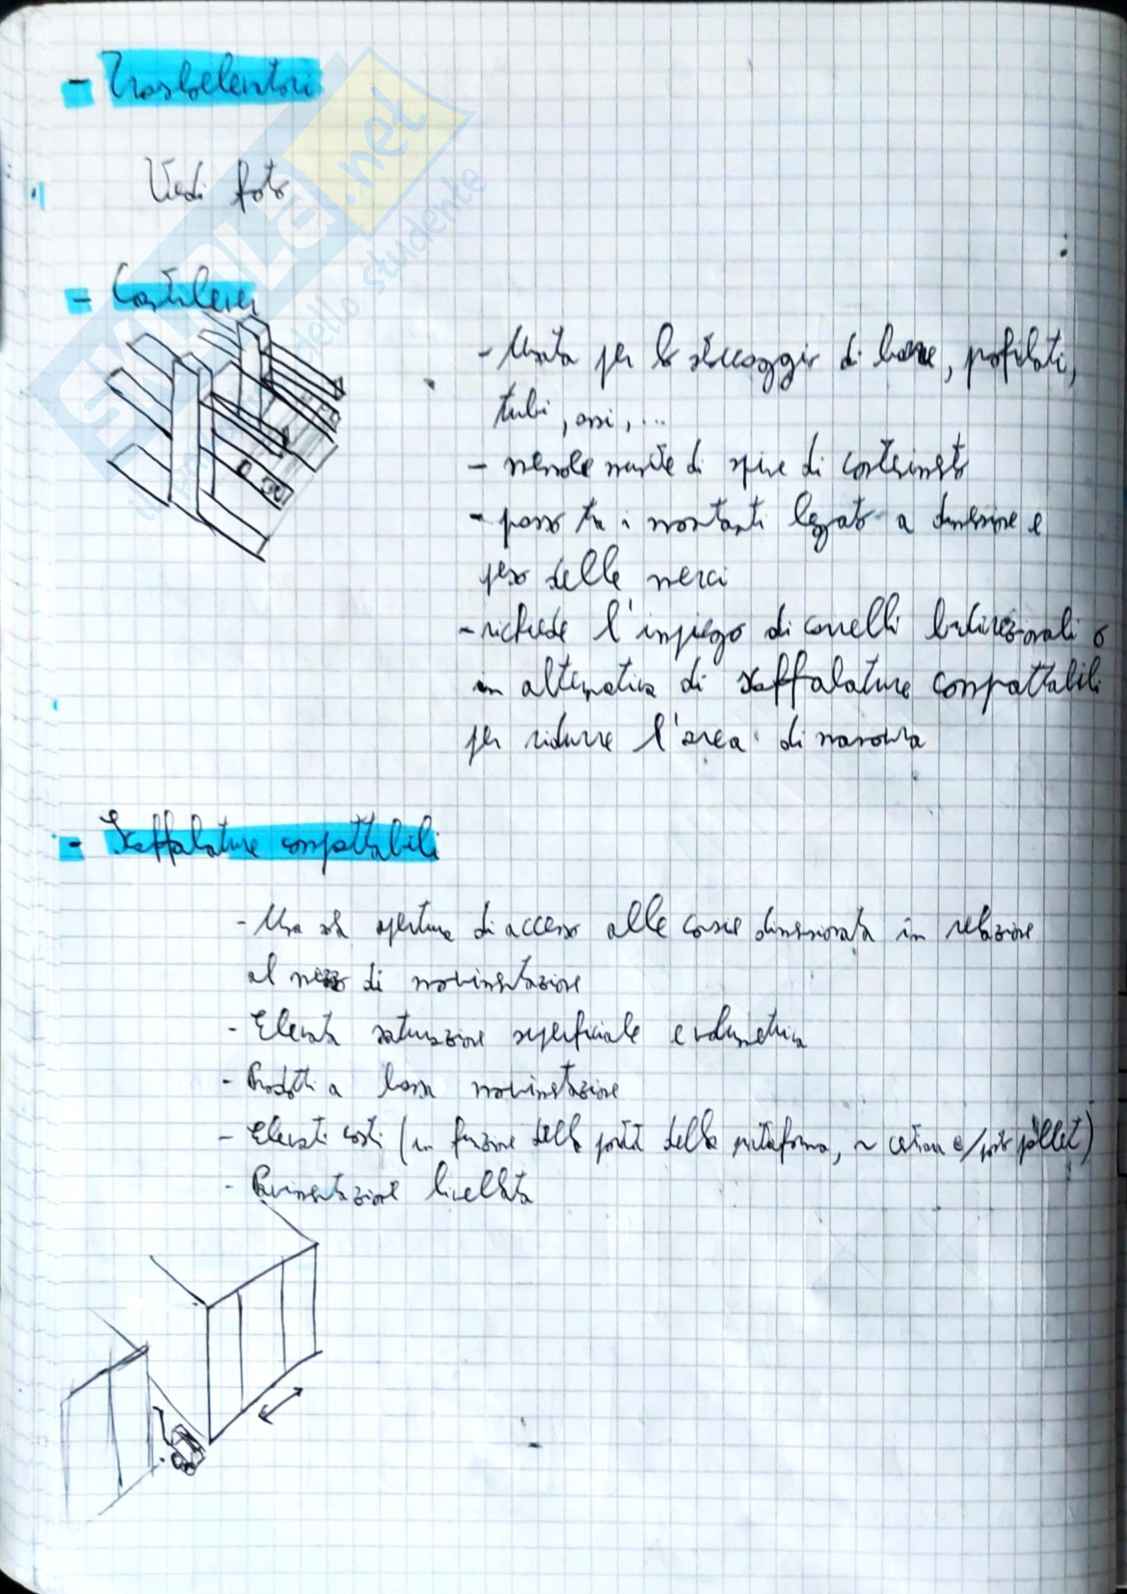 - Trasloelevatori
Vedi foto
- Cantilever
- Usata per lo stoccaggio di barre, profilati,
tubi, assi, ...
- di contenimento
- passo tra i montanti legato a dimensione e
peso delle merci
- richiede l'impiego di carrelli bidirezionali o
in alternativa di scaffalature compattabili
per ridurre l'area di manovra
- Scaffalature compattabili
- Una sola apertura di accesso alle corsie dimensionata in relazione
al mezzo di movimentazione
- Elevata saturazione superficiale e volumetrica
- Prodotti a bassa movimentazione
- Elevati costi (in funzione della portata della piattaforma, ~ pallet)
- Pavimentazione livellata
SKUOLA.net
dello studente